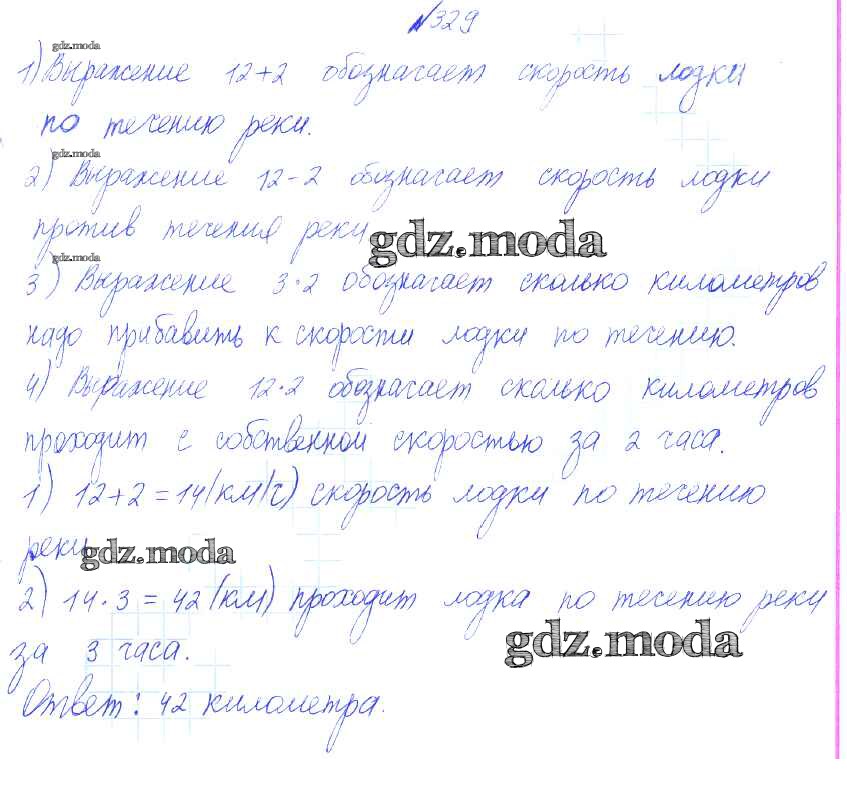 №329
gdz.moda
1) Выражение 12+2 обозначает скорость лодки
по течению реки.
gdz.moda
2) Выражение 12-2 обозначает скорость лодки
против течения реки
gdz.moda
gdz.moda
3) Выражение 3·2 обозначает сколько километров
надо прибавить к скорости лодки по течению.
4) Выражение 12·2 обозначает сколько километров
проходит с собственной скоростью за 2 часа.
1) 12+2=14(км/ч) скорость лодки по течению
реки
gdz.moda
2) 14·3=42(км) проходит лодка по течению реки
за 3 часа.
gdz.moda
Ответ: 42 километра.